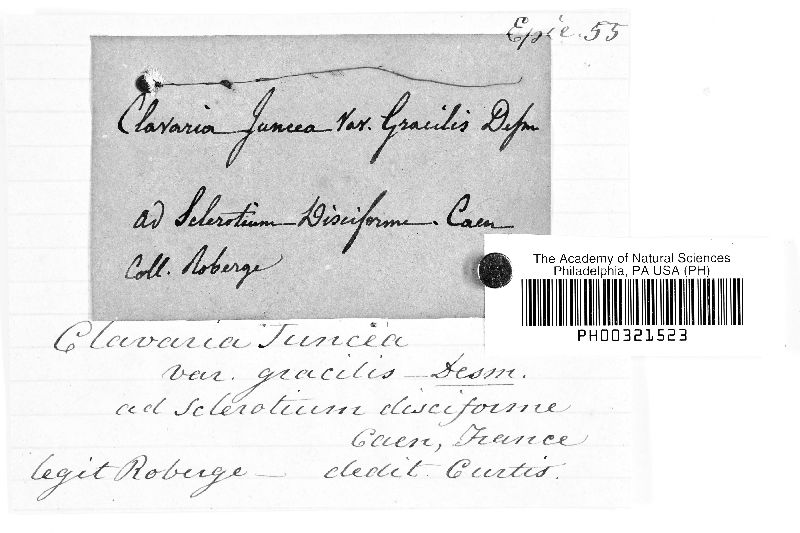 Epic. 55
Clavaria Juncea Var. Gracilis Desm
ad Sclerotium Disciforme. Caen
Coll. Roberge
The Academy of Natural Sciences
Philadelphia, PA USA (PH)
PH00321523
Clavaria Juncea
var. gracilis – Desm.
ad Sclerotium disciforme
Caen, France
legit Roberge – dedit Curtis.